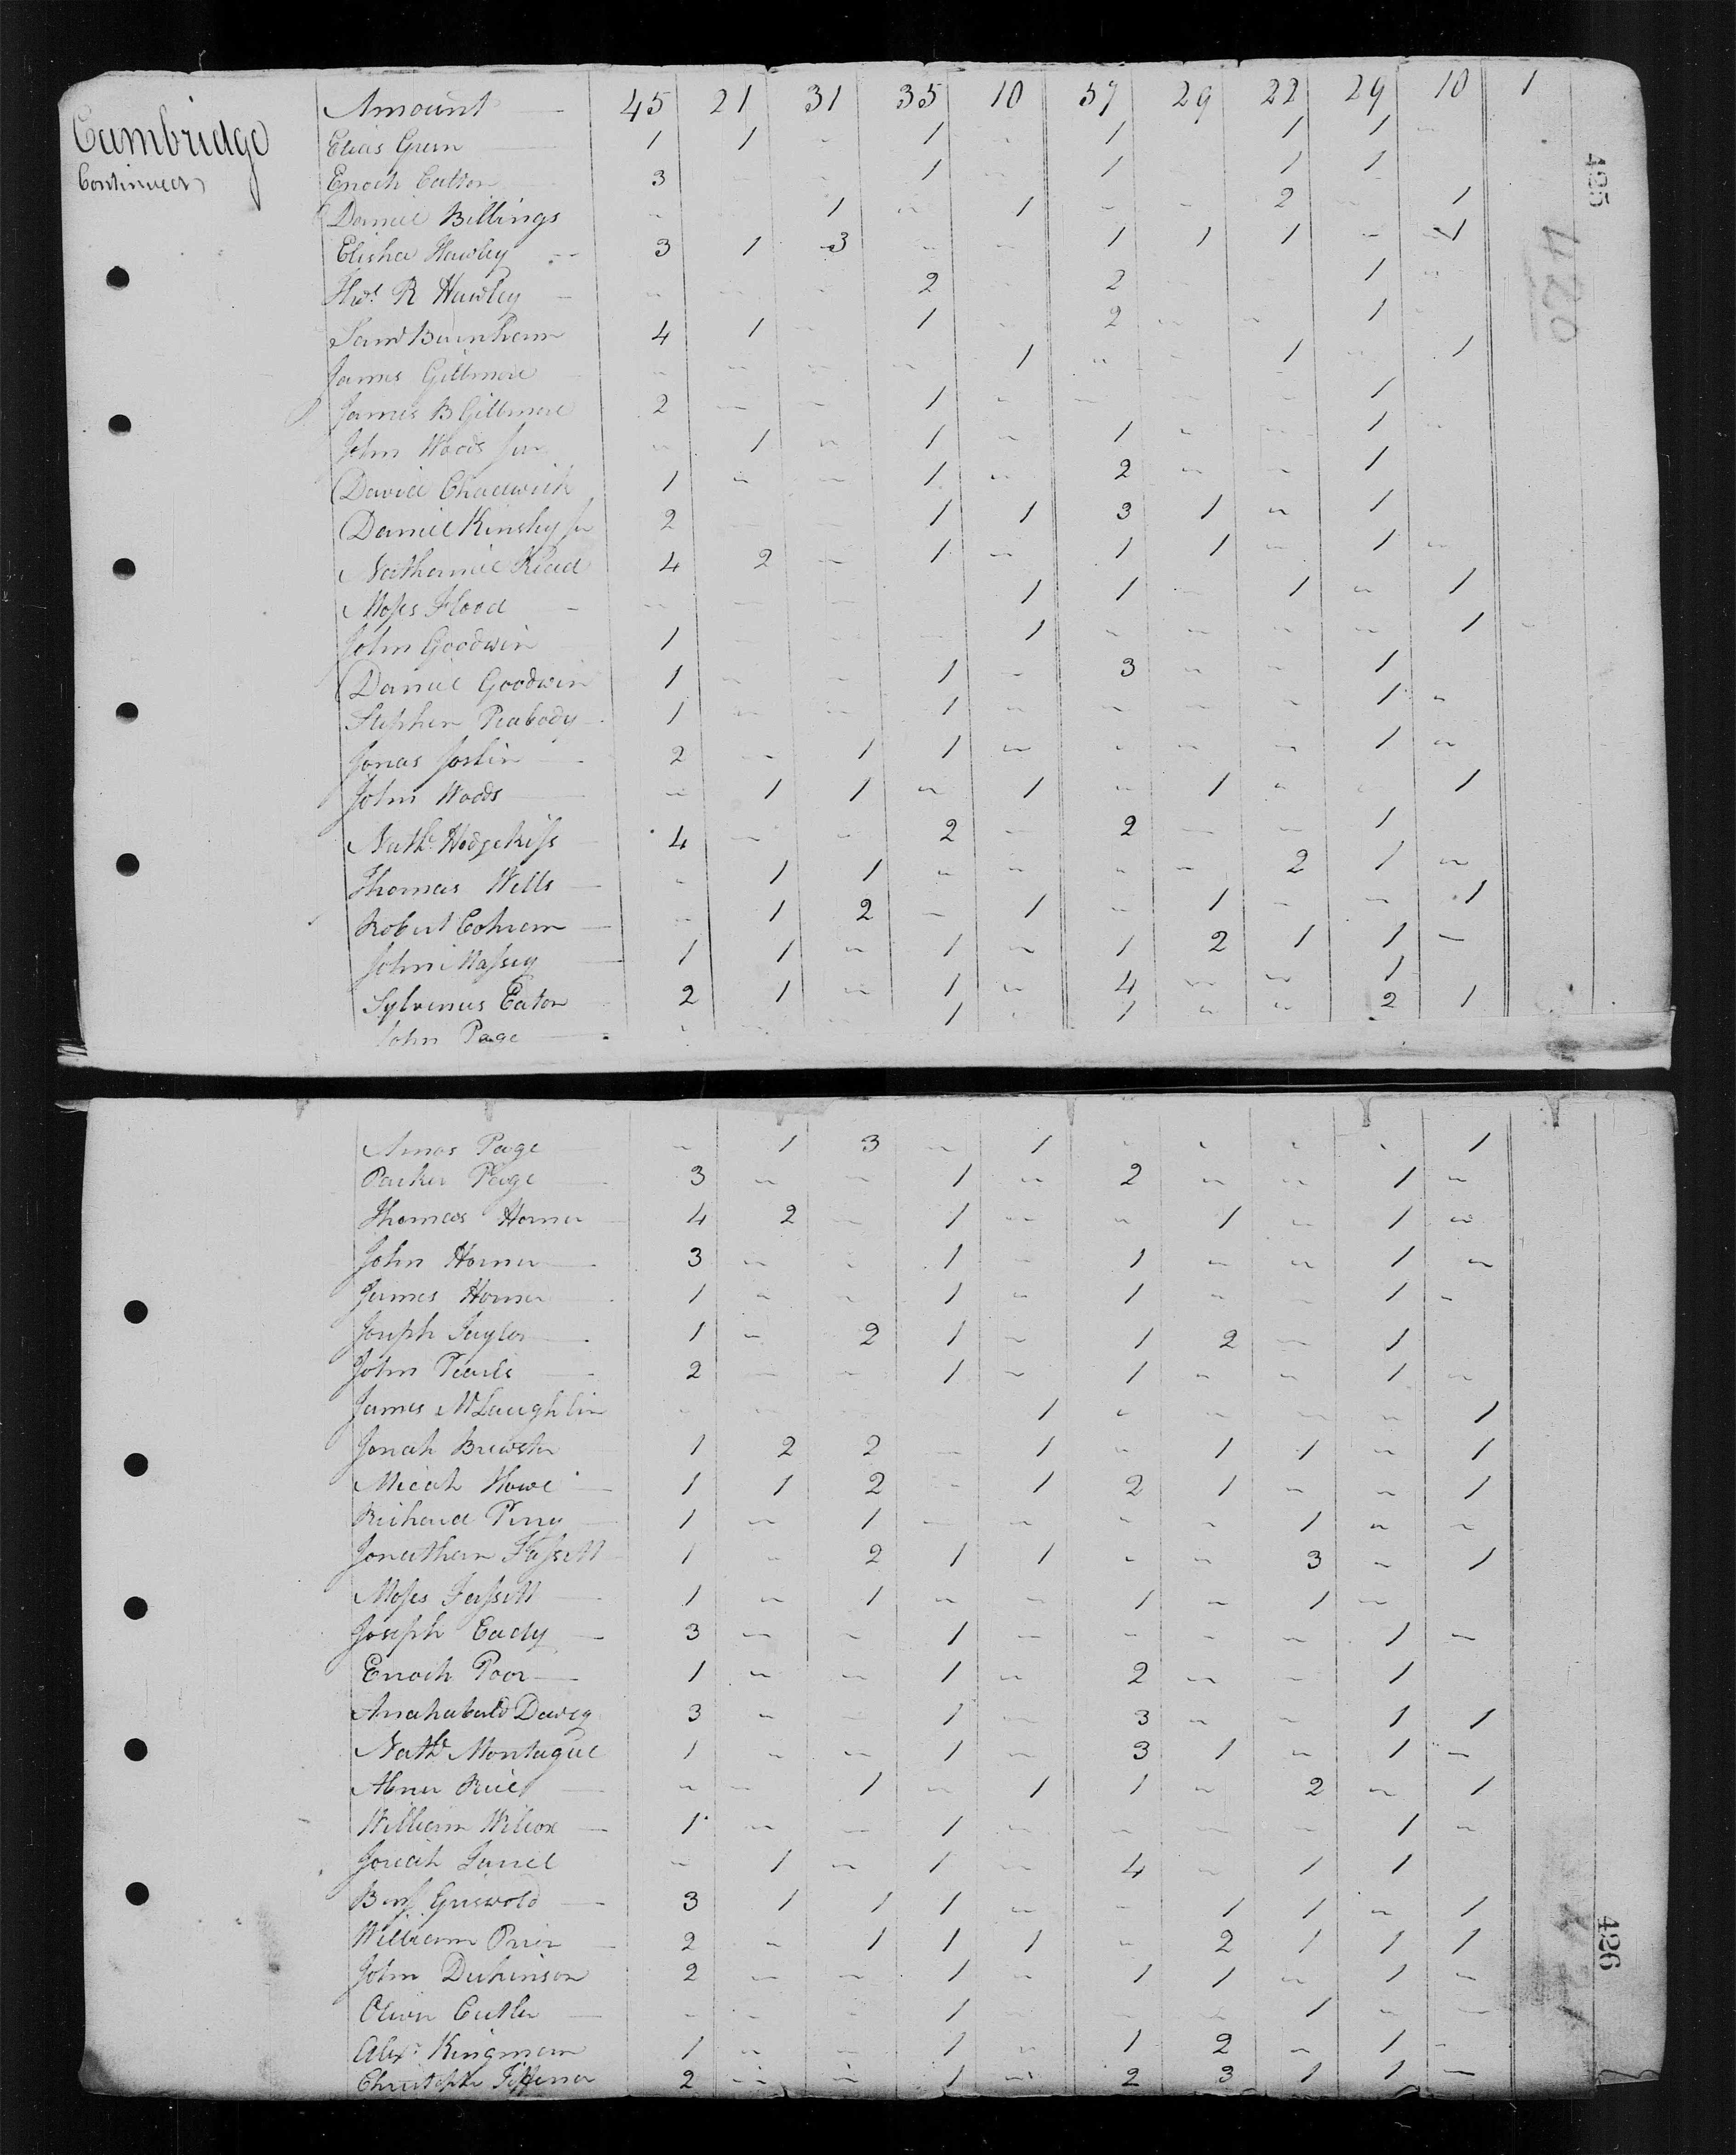 Cambridge Amount 45 21 31 35 10 57 29 22 29 10 1
Continued Elias Green 1 1 ~ 1 ~ 1 1 1 ~
Enoch Catton 3 ~ ~ 1 ~ 1 1 1
Daniel Billings ~ 1 ~ 1 ~ ~ 2 ~ 1
Elisha Hawley 3 1 3 ~ ~ 1 1 1 ~ 1
Thos R Hawley ~ ~ ~ 2 2 ~ 1 ~
Saml Burnham 4 1 ~ 1 ~ 2 ~ ~ 1 ~
James Gillmore ~ ~ ~ ~ 1 ~ ~ 1 ~ 1
James B Gillmore 2 ~ ~ 1 ~ ~ ~ 1
John Woods Jun ~ 1 ~ 1 ~ 1 ~ ~ 1 ~
David Chadwick 1 ~ ~ 1 ~ 2 ~ ~ 1
Daniel Kinsley Jr 2 1 1 3 1 ~ 1
Nathaniel Read 4 2 ~ 1 ~ 1 1 ~ 1 ~
Moses Flood ~ ~ ~ 1 1 ~ 1 ~ 1
John Goodwin 1 ~ ~ 1 ~ ~ ~ ~ 1 ~
Daniel Goodwin 1 ~ ~ 1 ~ 3 ~ ~ 1
Stephen Peabody 1 ~ ~ 1 ~ ~ ~ ~ 1 ~
Jonas Joslin 2 ~ 1 1 ~ ~ ~ ~ 1 ~
John Woods ~ 1 1 ~ 1 ~ 1 ~ ~ 1
Nathl Hodgekiss 4 ~ ~ 2 ~ 2 ~ ~ 1
Thomas Wells ~ 1 1 ~ ~ ~ ~ 2 1 ~
Robert Cohran ~ 1 2 ~ 1 ~ 1 ~ ~ 1
John Massey 1 1 ~ 1 ~ 1 2 1 1 ~
Sylvenus Eaton 2 1 ~ 1 ~ 4 ~ ~ 1
John Page ~ ~ ~ 1 ~ 1 ~ ~ 2 1
425
420
Amos Page ~ 1 3 ~ 1 ~ ~ ~ ~ 1
Parker Page 3 ~ ~ 1 ~ 2 ~ ~ 1 ~
Thomas Horner 4 2 ~ 1 ~ ~ 1 ~ 1 ~
John Horner 3 ~ ~ 1 ~ 1 ~ ~ 1 ~
James Horner 1 ~ ~ 1 ~ 1 ~ ~ 1 ~
Joseph Taylor 1 ~ 2 1 ~ 1 2 ~ 1
John Pearls 2 ~ ~ 1 ~ 1 ~ ~ 1 ~
James McLaughlin ~ ~ ~ ~ 1 ~ ~ ~ ~ 1
Jonah Brewster 1 2 2 ~ 1 ~ 1 1 ~ 1
Micah Howe 1 1 2 ~ 1 2 1 ~ ~ 1
Richard Perry 1 ~ 1 ~ ~ ~ ~ 1 ~ ~
Jonathan Fassett 1 ~ 2 1 1 ~ ~ 3 ~ 1
Moses Fassett 1 ~ 1 ~ ~ 1 ~ 1 ~
Joseph Eady 3 ~ ~ 1 ~ ~ ~ ~ 1 ~
Enoch Poor 1 ~ ~ 1 ~ 2 ~ ~ 1
Davey 3 ~ ~ 1 ~ 3 ~ ~ 1 1
Nathl Montague 1 ~ ~ 1 ~ 3 1 ~ 1 ~
Abner Rice ~ ~ 1 ~ 1 1 ~ 2 ~ 1
William Wilcox 1 ~ ~ 1 ~ ~ ~ ~ 1 ~
Josiah ~ 1 ~ 1 ~ 4 ~ 1 1
Benj Griswold 3 1 1 1 ~ ~ 1 1 ~ 1
William Prior 2 ~ 1 1 1 ~ 2 1 1 1
John Dickinson 2 ~ ~ 1 ~ 1 1 ~ 1 ~
Oliver Cutler ~ ~ ~ 1 ~ ~ ~ 1 ~ ~
Alexr Kingman 1 ~ ~ 1 ~ 1 2 ~ 1 ~
Christophr 2 ~ ~ 1 ~ 2 3 1 1 ~
426